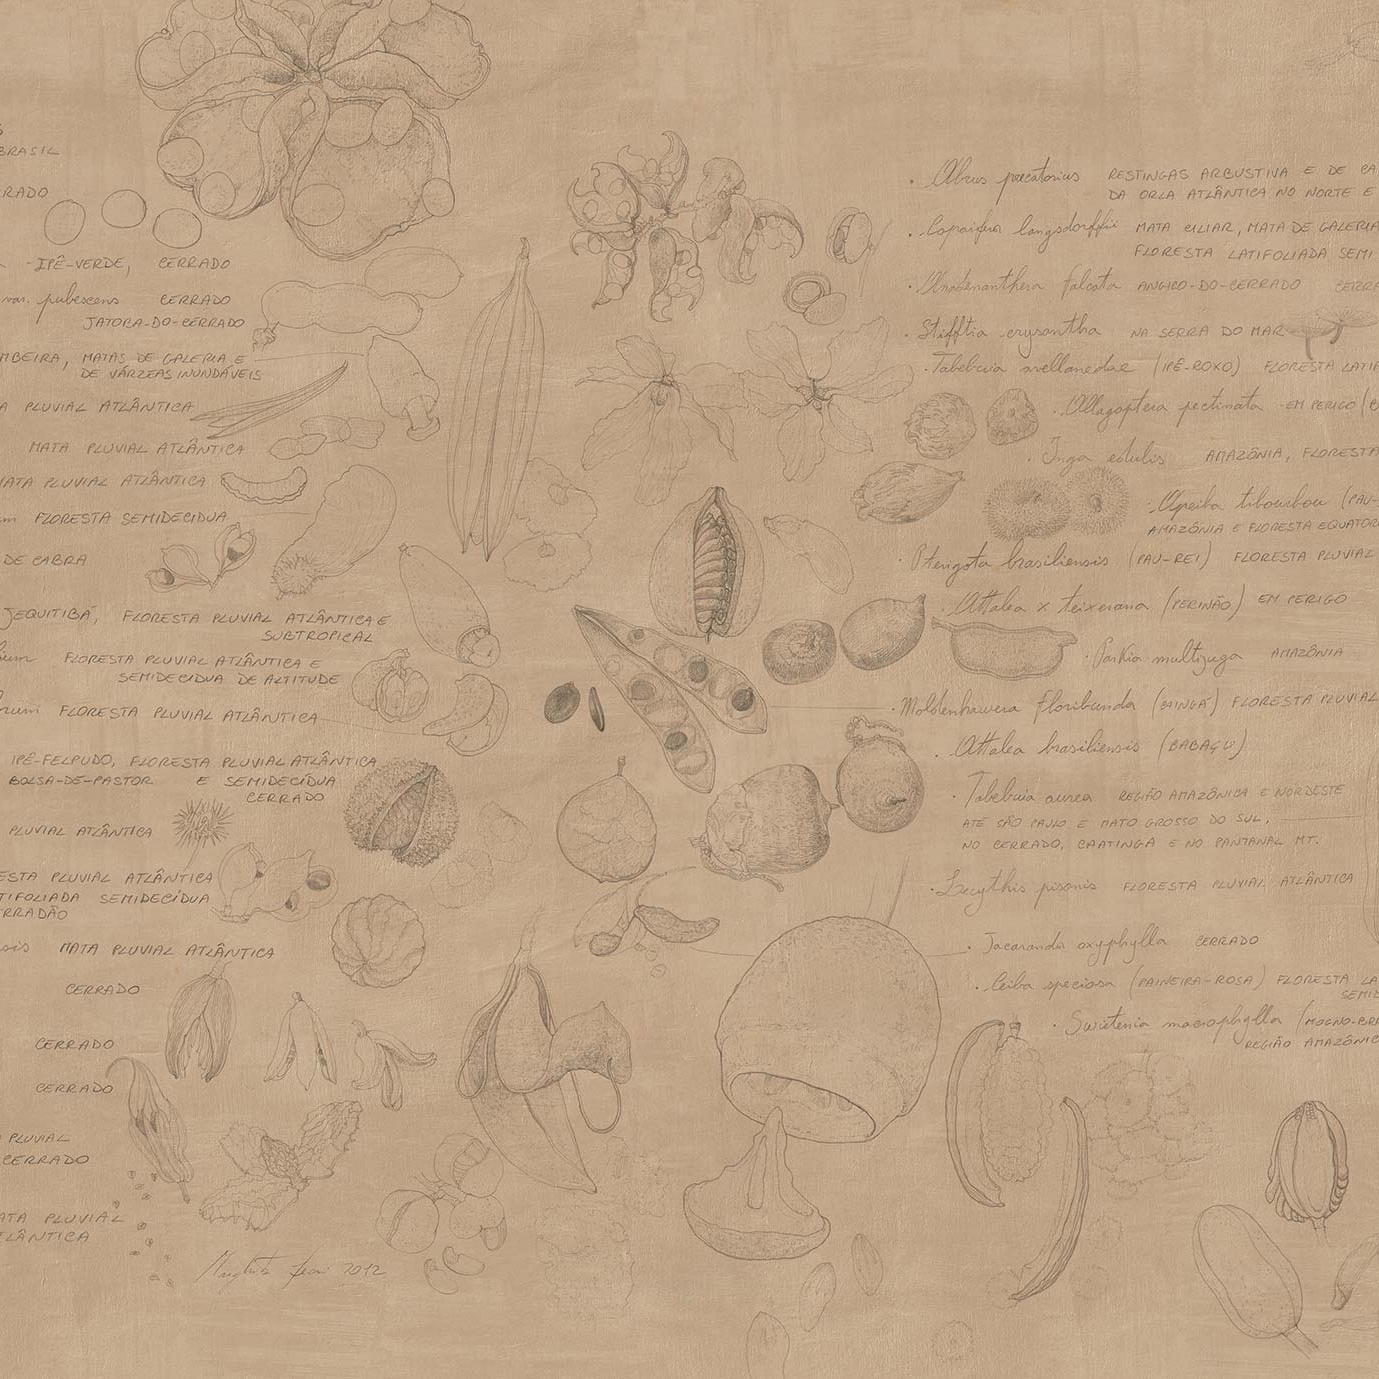 BRASIL
RRADO
-IPÊ-VERDE, CERRADO
var. pubescens CERRADO
JATOBA-DO-CERRADO
MBEIRA, MATAS DE GALERIA E
DE VÁRZEAS INUNDÁVEIS
A PLUVIAL ATLÂNTICA
MATA PLUVIAL ATLÂNTICA
MATA PLUVIAL ATLÂNTICA
FLORESTA SEMIDECIDUA
DE CABRA
JEQUITIBÁ, FLORESTA PLUVIAL ATLÂNTICA E
SUBTROPICAL
FLORESTA PLUVIAL ATLÂNTICA E
SEMIDECIDUA DE ALTITUDE
FLORESTA PLUVIAL ATLÂNTICA
IPÊ-FELPUDO, FLORESTA PLUVIAL ATLÂNTICA
BOLSA-DE-PASTOR E SEMIDECÍDUA
CERRADO
PLUVIAL ATLÂNTICA
ESTA PLUVIAL ATLÂNTICA
TIFOLIADA SEMIDECÍDUA
ERRADÃO
MATA PLUVIAL ATLÂNTICA
CERRADO
CERRADO
CERRADO
PLUVIAL
CERRADO
ATA PLUVIAL
TLÂNTICA
2012
Abrus precatorius RESTINGAS ARBUSTIVA E DE CA
DA ORLA ATLÂNTICA NO NORTE E
Copaifera langsdorffii MATA CILIAR, MATA DE GALERIA
FLORESTA LATIFOLIADA SEMI
Anadenanthera falcata ANGICO-DO-CERRADO CERRA
Stifftia crysantha NA SERRA DO MAR
Tabebuia avellanedae (IPÊ-ROXO) FLORESTA LATIF
Allagoptera pectinata -EM PERIGO
Inga edulis AMAZÔNIA, FLORESTA
Apeiba tibourbou (PAU-
AMAZÔNIA E FLORESTA EQUATOR
Pterigota brasiliensis (PAU-REI) FLORESTA PLUVIAL
Attalea x teixerana (PERINÃO) EM PERIGO
Parkia multijuga AMAZÔNIA
Moldenhawera floribunda (GUINGÁ) FLORESTA PLUVIAL
Attalea brasiliensis (BABAÇU)
Tabebuia aurea REGIÃO AMAZÔNICA E NORDESTE
ATÉ SÃO PAULO E MATO GROSSO DO SUL,
NO CERRADO, CAATINGA E NO PANTANAL MT.
Lecythis pisonis FLORESTA PLUVIAL ATLÂNTICA
Jacaranda oxyphylla CERRADO
Ceiba speciosa (PAINEIRA-ROSA) FLORESTA LA
SEMID
Swietenia macrophylla (MOGNO-BRA
REGIÃO AMAZÔNIC